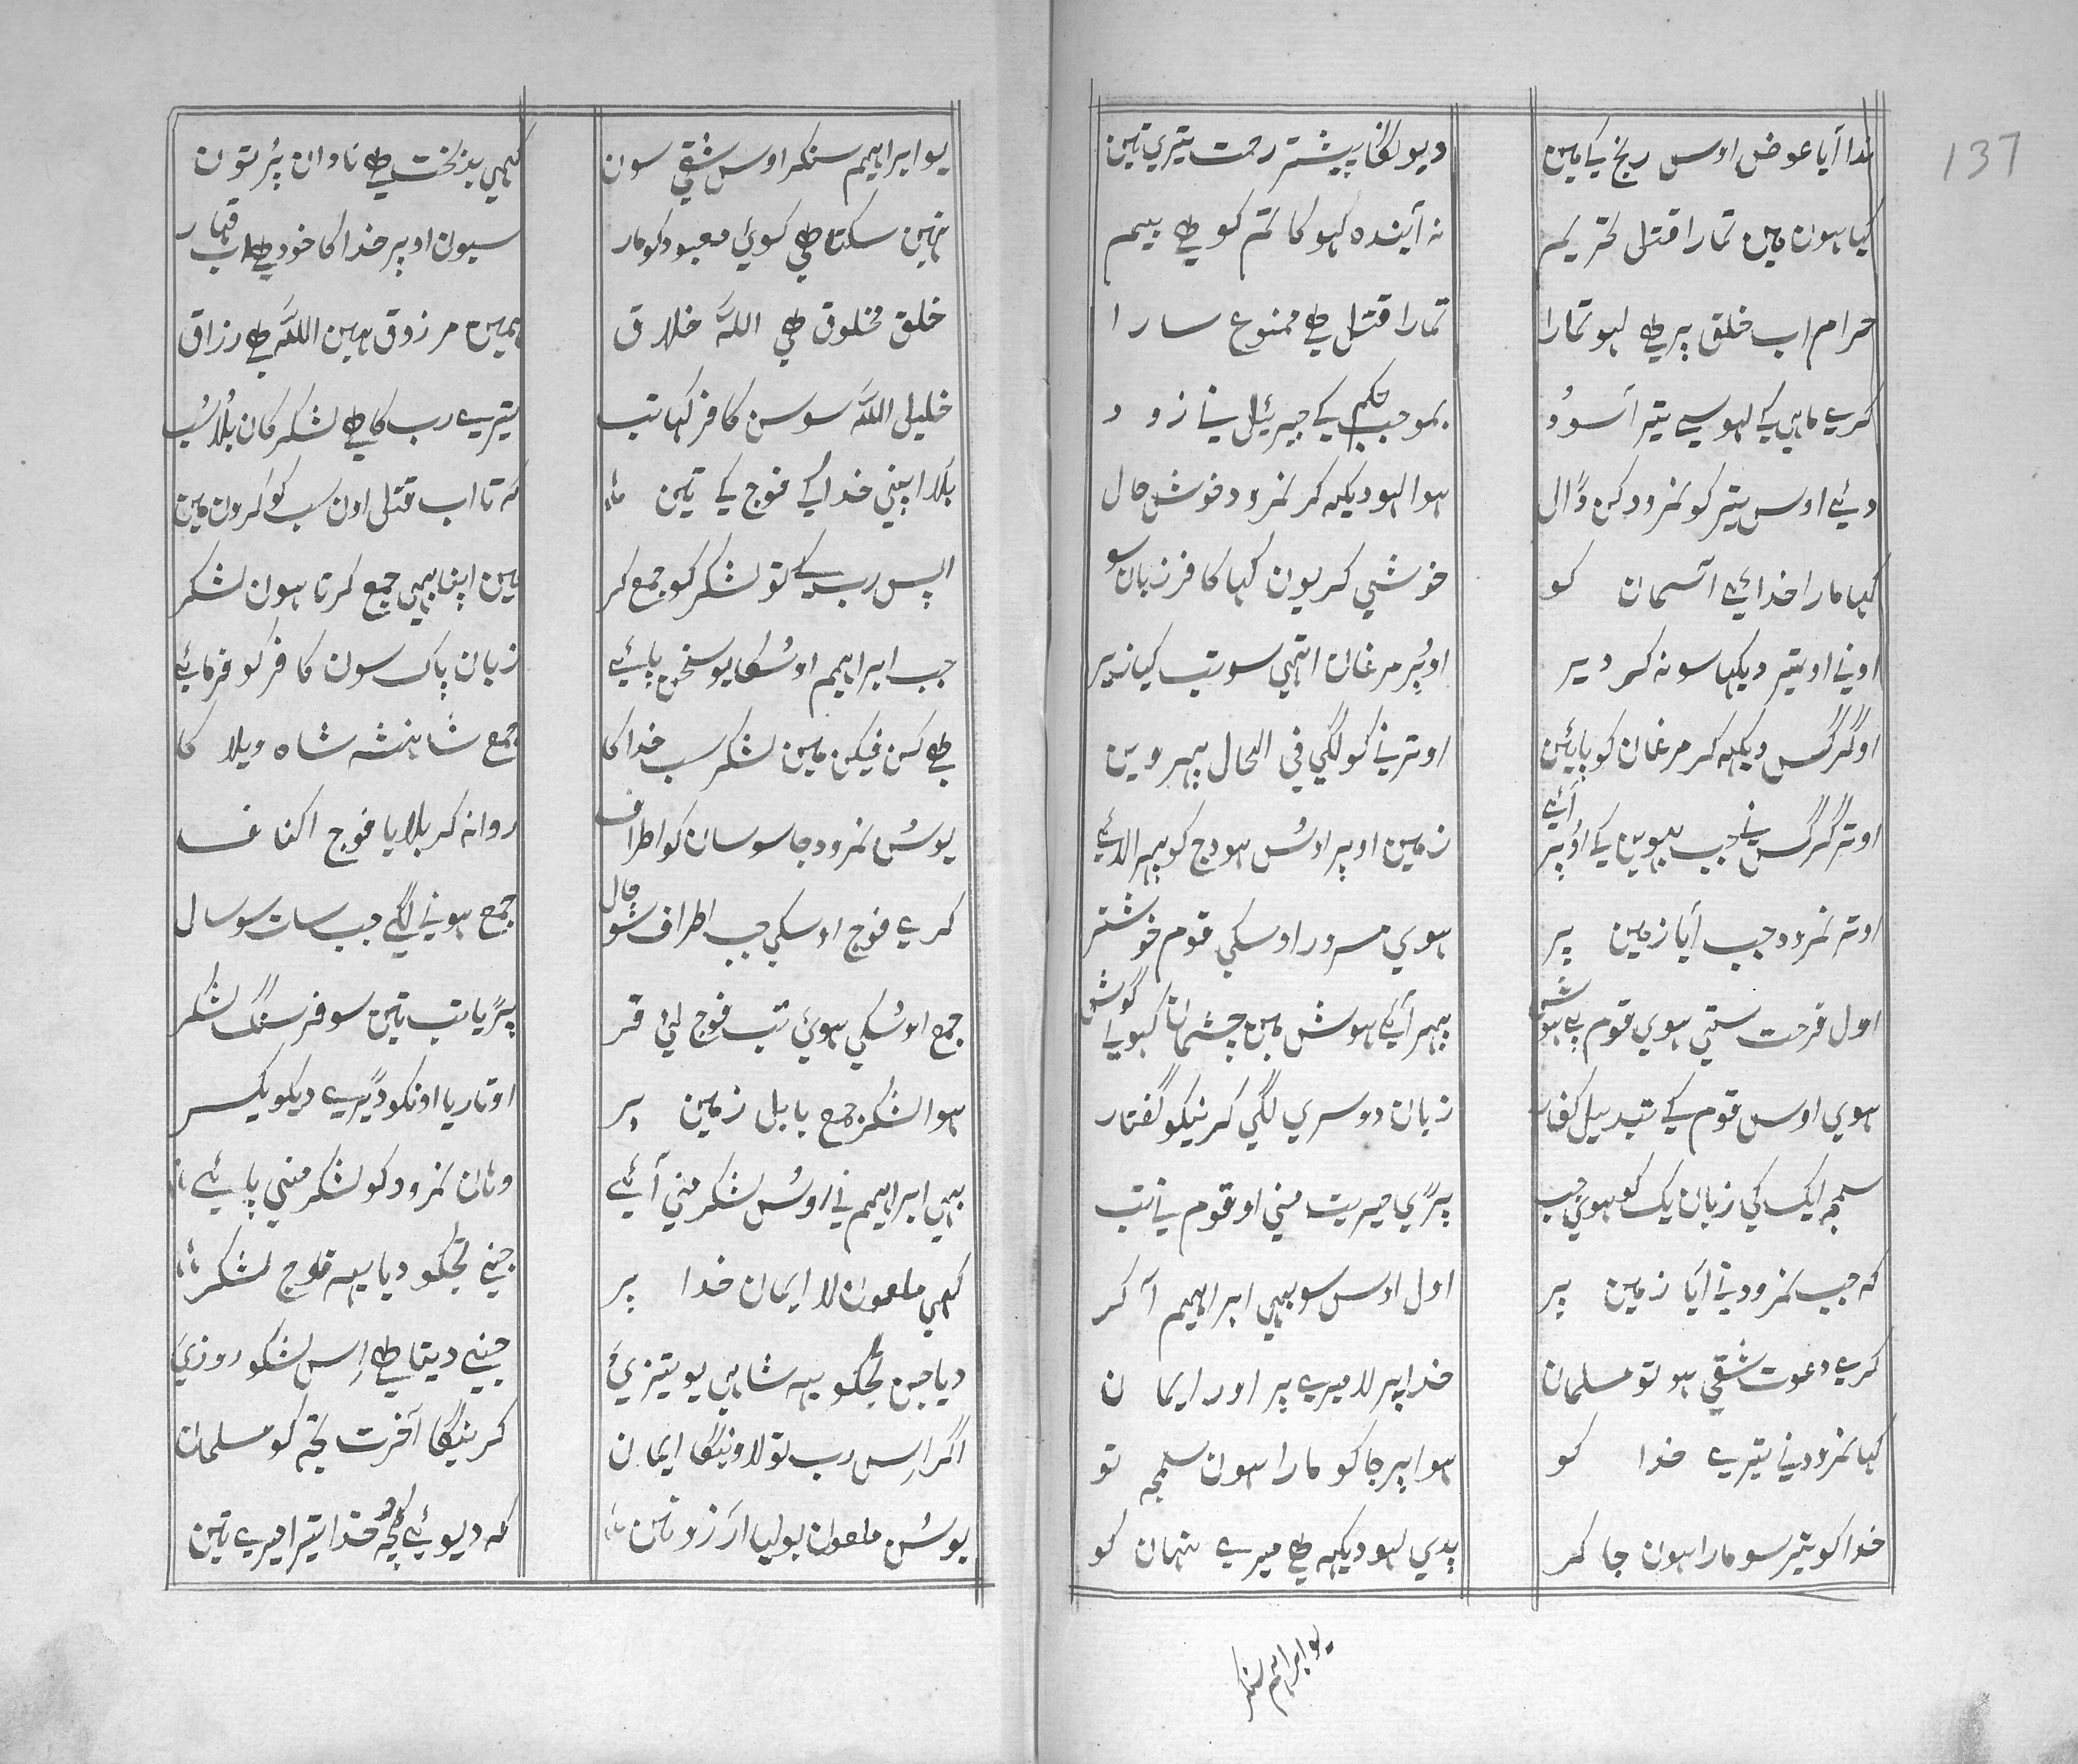 137
ندا آیا عوض اوس رنج کے مین دیونگا پیشتر رحمت تیری تین
کیا ہون مین تمارا قتل تحریم نہ آیندہ ہوکا تم کو ہے بیم
حرام اب خلق پر ہے لہو تمارا تمارا قتل ہے ممنوع سارا
کرے ماہی کے لہو سے تیر آسود بموجب حکم کے جبرئیل نے زود
دیئے اوس تیر کو نمرود کن ڈال ہوا لہو دیکہہ کر نمرود خوش حال
کہا مارا خدائے آسمان کو خوشی کر یون کہا کافر زبان سو
اونے او تیر دیکہا سو نہ کر دیر اوپر مرغان اتہی سو تب کیا زیر
او گرگس دیکہہ کر مرغان کو پائین اوترنے کو لگی فی الحال بہروین
اوتر گرگس نے جب بہوین کے اوپر آئے زمین اوپر اوس ہودج کو بہرالائے
اوتر نمرود جب آیا زمین پر ہوی مسرور اوسکی قوم خوشتر
اول فرحت ستی ہوی قوم بے ہوش بہر آکے ہوش مین چشمان کہولے گوش
ہوی اوس قوم کے تبدیل گفتار زبان دوسری لگی کرنیکو گفتار
سمجہ ایک کی زبان یک کو ہوی جب پڑی حیرت منی او قوم نے تب
کہ جب نمرود نے آیا زمین پر اول اوس سو بہی ابراہیم آ کر
کرے دعوت شقی ہو تو مسلمان خدا پر لا میرے پر اور ایمان
کہا نمرود نے تیرے خدا کو ہوا پر جاکو مارا ہون سمجہ تو
خدا کو تیر سو مارا ہون جا کر پدی لہو دیکہہ ہے میرے نہان کو
یو ابراہیم سنکر
یو ابراہیم سنکر اوس شقی سون کہی بدبخت ہے نادان پر تون
نہین سکتا ہے کوی معبود کو مار سیون اوپر خدا کا خود ہے اب قہار
خلق مخلوق ہے اللہ خلاق ہمین مرزوق ہین اللہ ہے رزاق
خلیل اللہ سو سن کافر کہا تب تیرے رب کا ہے لشکر کان بلا سب
بلا اپنی خدا کے فوج کے تین کہ تا اب قتل اون سب کو کرون مین
اپس رب کے تو لشکر کو جمع کر مین اپنا بہی جمع کرتا ہون لشکر
جب ابراہیم اوسکا یو سخن پائے زبان پاک سون کافر کو فرمائے
ہے کن فیکن مین لشکر سب خدا کا جمع شاہنشہ شاہ ویلا کا
یو سن نمرود جاسوسان کو اطراف روانہ کر بلایا فوج اکناف
کرے فوج اوسکی جب اطراف سو چال جمع ہونے لگے جب سات سو سال
جمع اوسکی ہوی تب فوج پڑیا تب تین سو فرسنگ لشکر
ہوا لشکر جمع بابل زمین پر اوتاریا اونکو ڈیرے دیکو یکسر
بہی ابراہیم نے اوس لشکر منی آئے وہان نمرود کو لشکر منی پائے
کہی ملعون لا ایمان خدا پر جنے تجکو دیا یہہ فوج لشکر
دیا جن تجکو یہہ شاہی یو تیزی جنے دیتا ہے اس لشکو روزی
اگر اس رب تو لاوینگا ایمان کرینگا آخرت تجہ کو مسلمان
یو سن ملعون بولیا آرزو نین کہ دیوئے کچہ خدا تیرا میرے تین